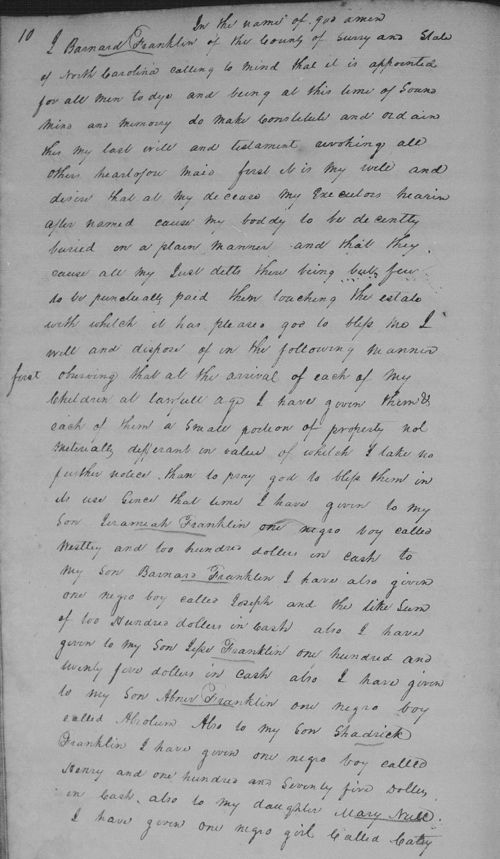 10 In the name of god amen
I Barnard Franklin of the County of Surry and State
of North Carolina calling to mind that it is appointed
for all men to dye and being at this time of Sound
mind and memory do make Constitute and ordain
this my last will and testament revoking all
others heartofore maid first it is my will and
desire that at my decease my Executors hearin
after named cause my boddy to be decently
buried in a plain manner and that they
cause all my Just detts there being but few
to be punctually paid then touching the estate
with whitch it has pleased god to bless me I
will and dispose of in the following manner
first observing that at the arrival of each of my
Children at lawfull age I have given them &
each of them a Small portion of property not
Materially differant in value of whitch I take no
further notice than to pray god to bless them in
its use Since that time I have given to my
Son Jeramiah Franklin one negro boy called
Westley and too hundred dollars in cash to
My Son Barnard Franklin I have also given
one negro boy called Joseph and the like Sum
of too Hundred dollars in Cash also I have
given to my Son Jesse Franklin one hundred and
twenty five dollars in cash also I have given
to my Son Abner Franklin one negro boy
called Absolum Also to my Son Shadrick
Franklin I have given one negro boy called
Henry and one hundred and Seventy five Dollers
in Cash. also to my daughter Mary
I have given one negro girl Called Caty